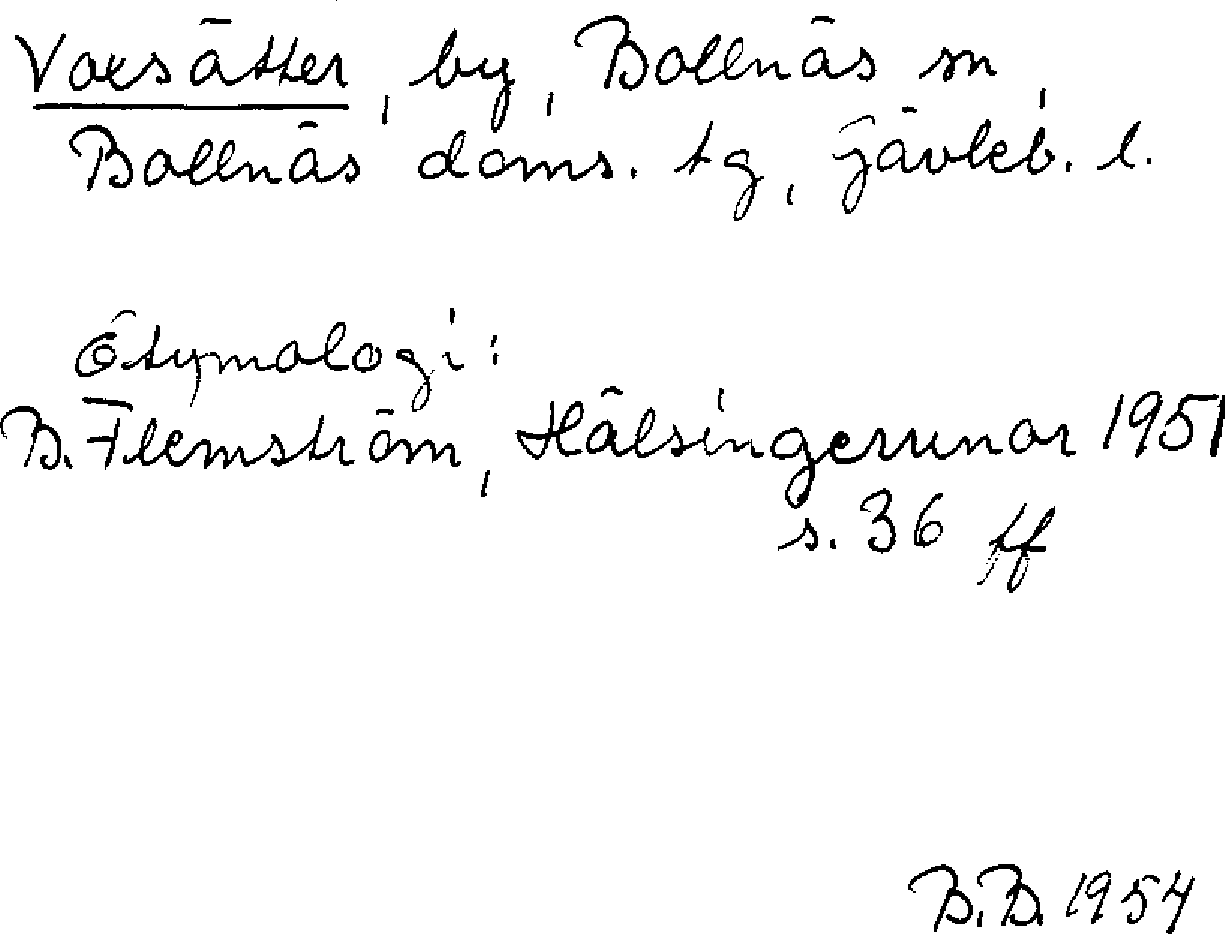 Voxsätter, by, Bollnäs sn,
Bollnäs doms. tg, Gävleb. l.
Etymologi:
B. Flemström, Hälsingerunor 1951
s. 36 ff
B.B. 1954